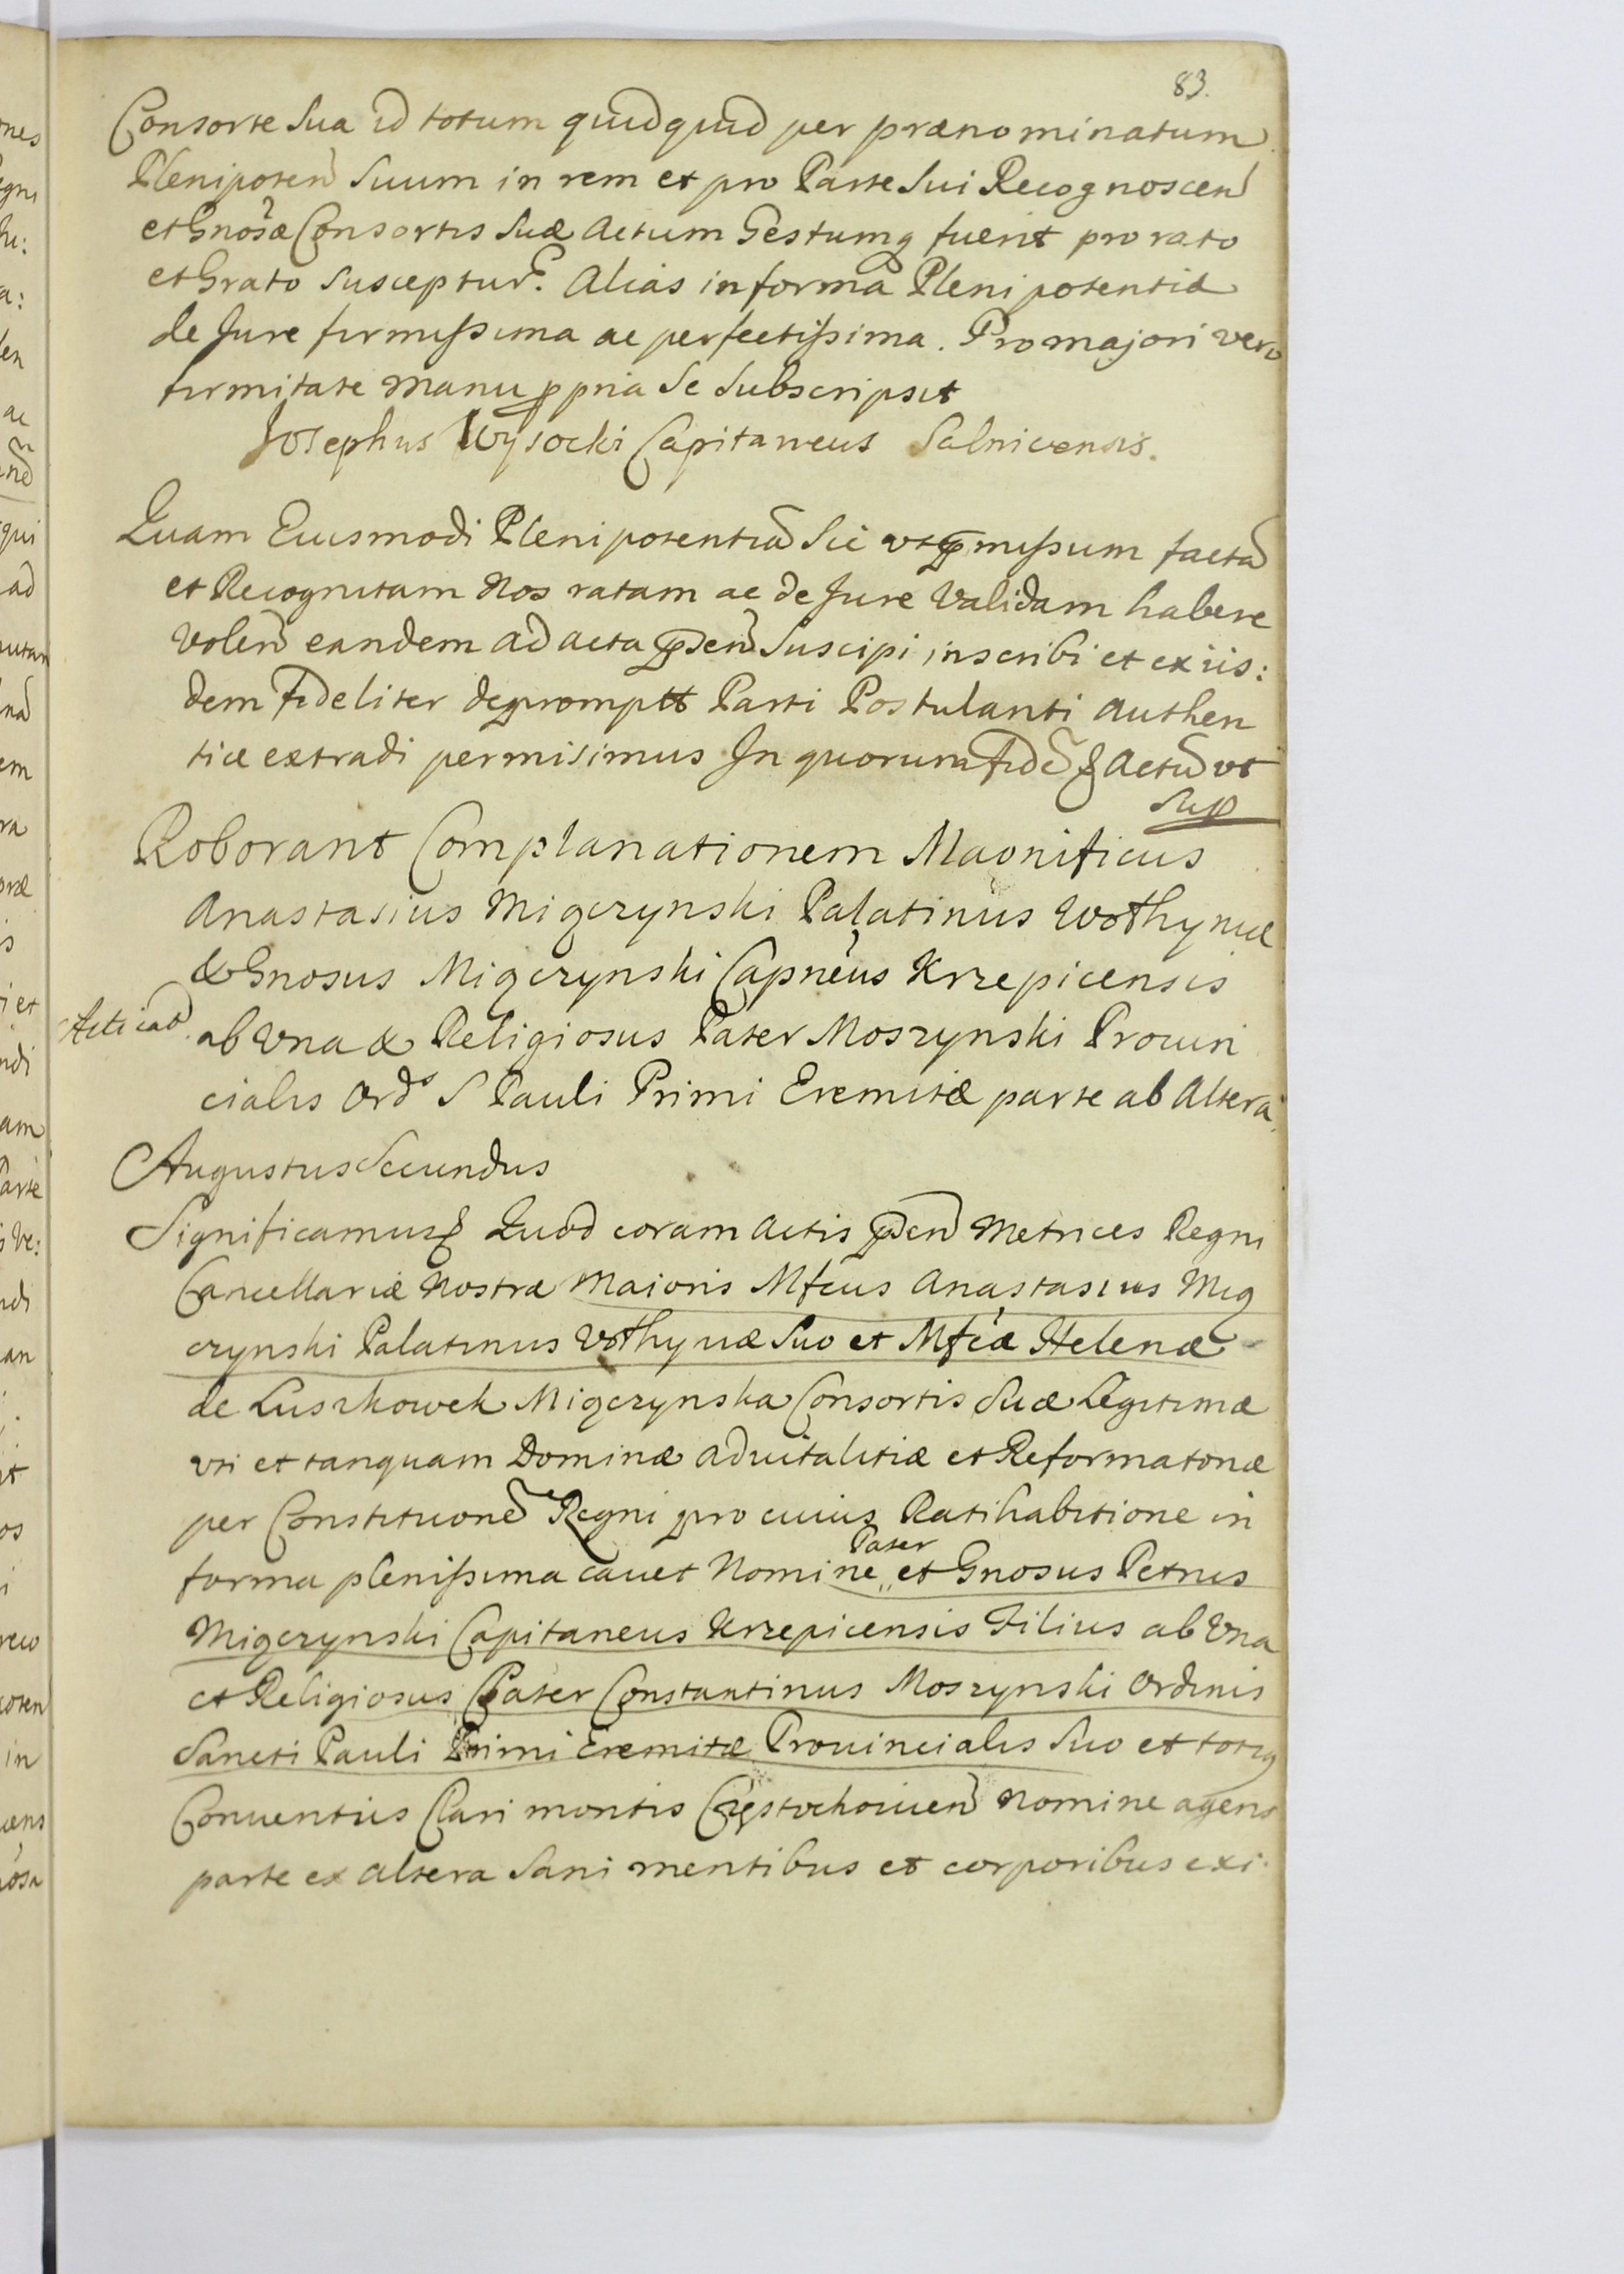 83.
Consorte Sua id totum quidquid per prænominatum
Plenipoten Suum in rem et pro Parte Sui Recognoscen
et Gnosæ Consortis Suæ Actum Gestumq fuerit pro rato
et Grato Suscepturq. Alias in forma Plenipotentiæ
de Jure firmissima ac perfectissima. Pro majori vero
firmitate manu ppria Se Subscripsit
Josephus Wysocki Capitaneus Salnicensis.
Quam Eiusmodi Plenipotentiã Sic vt pmissum factã
et Recognitam Nos ratam ac de Jure Validam habere
Volen eandem ad acta pden Suscipi inscribi et ex iis:
dem fideliter depromptt Parti Postulanti authen
tice extradi permisimus In quorum fide & Actũ vt
Sup
Roborant Complanationem Magnificus
Anastasius Miączynski Palatinus Wołhyniæ
& Gnosus Miączynski Capneus Krzepicensis
Acticat
ab Vna & Religiosus Pater Moszynski Prouin
cialis Ords S Pauli Primi Eremitæ parte ab Altera
Augustus Secundus
Significamus & Quod coram actis pden Metrices Regni
Cancellariæ Nostræ Maioris Mfcus Anastasius Mią
czynski Palatinus Wołhyniæ Suo et Mfcæ Helenæ
de Luszkowek Miączynska Consortis Suæ Legitimæ
vti et tanquam Dominæ aduitalitiæ et Reformatoriæ
per Constitutione Regni pro cuius Ratihabitione in
forma plenissima cauet Nomine Pater et Gnosus Petrus
Miączynski Capitaneus Krzepicensis Filius ab Vna
et Religiosus Pater Constantinus Moszynski Ordinis
Sancti Pauli Primi Eremitæ Prouincialis Suo et totiq
Conuentus Clari montis Częstochouien nomine agens
parte ex altera Sani mentibus et corporibus exi